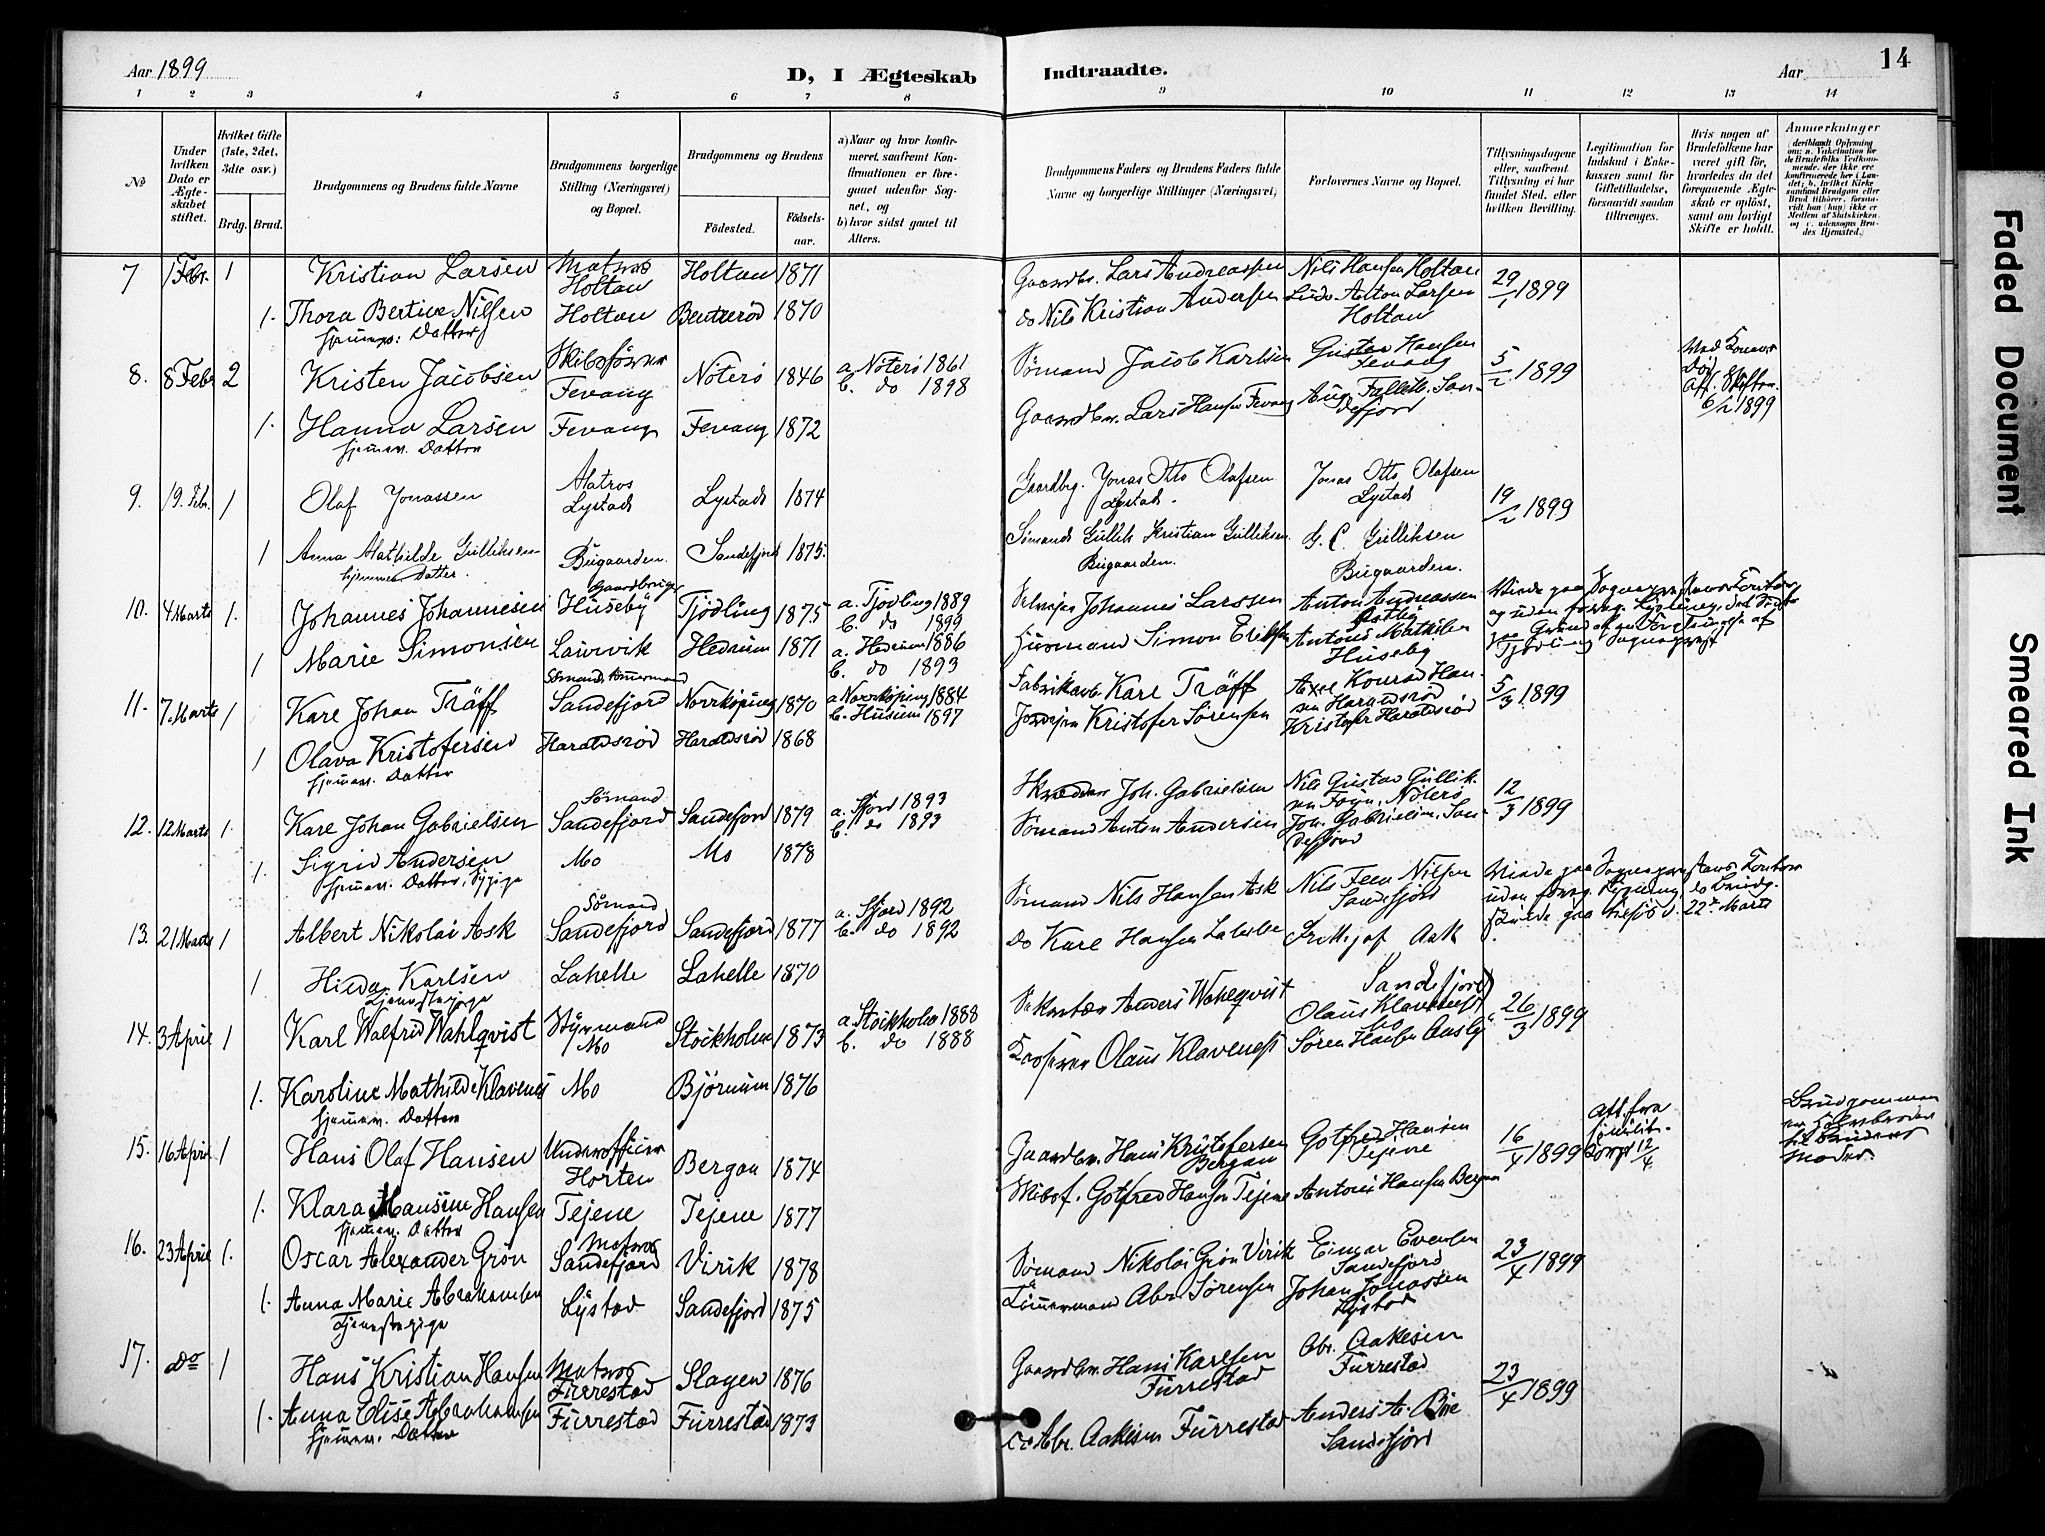 Aar 1899
D, I Ægteskab Indtraadte.
Aar
14
1 2 3 4 5 6 7 8 9 10 11 12 13 14
No
Under hvilken Dato er Ægteskabet stiftet.
Hvilket Gifte (1ste, 2det, 3die osv.)
Brdg. Brud.
Brudgommens og Brudens fulde Navne
Brudgommens borgerlige Stilling (Næringsvei) og Bopæl.
Brudgommens og Brudens
Fødested. Fødselsaar.
a) Naar og hvor konfirmeret, saafremt Konfirmationen er foregaaet udenfor Sognet, og
b) hvor sidst gaaet til Alters.
Brudgommens Faders og Brudens Faders fulde Navne og borgerlige Stillinger (Næringsvei)
Forlovernes Navne og Bopæl.
Tillysningsdagene eller, saafremt Tillysning ei har fundet Sted, efter hvilken Bevilling.
Legitimation for Indskud i Enkekassen samt for Giftetilladelse, forsaavidt saadan tiltrænges.
Hvis nogen af Brudefolkene har været gift før, hvorledes da det foregaaende Ægteskab er opløst, samt om lovligt Skifte er holdt.
Anmerkninger
7 1 Febr. 1 Kristian Larsen Matros Holtan Holtan 1871 Gaardbr. Lars Andreassen Nils Hansen Holtan 29/1 1899
1. Thora Bertine Nilsen Holtan Bentserød 1870 do Nils Kristian Andersen Anton Larsen Holtan
hjemmev. Datter
8. 8 Febr 2 Kristen Jacobsen Skibsfører Fevang Nøterø 1846 a. Nøterø 1861 b. do 1898 Sømand Jacob Karlsen Gustav Hansen Fevang 5/2 1899
6/2 1899
1. Hanna Larsen Fevang Fevang 1872 Gaardbr. Lars Hansen Fevang Sandefjord
hjemmev. Datter
9. 19. Febr. 1 Olaf Jonassen Matros Lystad Lystad 1874 Gaardbrg. Jonas Otto Olafsen Lystad. Jonas Otto Olafsen Lystad 19/2 1899
1 Anna Mathilde Gulliksen Bugaarden. Sandefjord 1875. Sømand Gullik Kristian Gulliksen Bugaarden. G. C. Gulliksen Bugaarden.
hjemmev. Datter.
10. 4 Marts 1. Johannes Johannesen Gaardbruger Huseby Tjødling 1875 a. Tjødling 1889 b. do 1899 Selveier Johannes Larssen Anton Andreassen
1 Marie Simonsen Laurvik Hedrum 1871 a. Hedrum 1886 b. do 1893 Husmand Simon Eriksen Antoni Mathisen Huseby
11. 7. Marts 1 Karl Johan Träff Sandefjord Norrköping 1870 a Norrköping 1884 b. Husum 1897 Fabrikarb. Karl Träff Axel Konrad Hansen Haraldsrød 5/3 1899
1 Olava Kristofersen Haraldsrød Haraldsrød 1868 Kristofer Sørensen Kristofer Haraldsrød
hjemmev. Datter
12. 12 Marts 1. Karl Johan Gabrielsen Sømand Sandefjord Sandefjord 1879 a. Sfjord 1893 b. do 1893 Skrædder Joh. Gabrielsen Nils Gustav Gulliksen Føyn, Nøterø 12/3 1899
1. Sigrid Andersen Mo Mo 1878 Sømand Anton Andersen Joh. Gabrielsen, Sandefjord
hjemmev. Datter, Sypige
13. 21 Marts 1 Albert Nikolai Ask Sømand Sandefjord Sandefjord 1877 a. Sfjord 1892 b. do 1892 Sømand Nils Hansen Ask Nils Teen Nilsen Sandefjord
1 Hilda Karlsen Lahelle Lahelle 1870 do Karl Hansen Lahelle Fritjof Ask Sandefjord
Tjenestepige
14. 3 April 1 Karl Walfrid Wahlqvist Styrmand Mo Stockholm 1873 a. Stockholm 1888 b. do 1888 Anders Wahlqvist Olaus Klavenest 26/3 1899
1. Karoline Mathilde Klavenes Mo Bjørnum 1876 Olaus Klavenest Søren Hansen
hjemmev. Datter
15. 16 April 1 Hans Olaf Hansen Underofficier Horten Bergan 1874 Gaardbr. Hans Kristofersen Bergan Gotfred Hansen Tejene 16/4 1899
1. Klara Hansine Hansen Tejene Tejene 1877 Skibsf. Gotfred Hansen Tejene Antoni Hansen Bergan
hjemmev. Datter
16. 23 April 1. Oscar Alexander Grøn Matros Sandefjord Virik 1878 Sømand Nikolai Grøn Virik Einar Evensen Sandefjord 23/4 1899
1. Anna Marie Abrahamsen Lystad Sandefjord 1875 Tømmermand Abr. Sørensen Johan Jonassen Lystad
Tjenestepige
17. do 1 Hans Kristian Hansen Matros Furrestad Slagen 1876 Gaardbr. Hans Karlsen Furrestad Abr. Aakesen Furrestad 23/4 1899
1. Anna Elise Abrahamsen Furrestad Furrestad 1873 do Abr. Aakesen Furrestad Anders A. Bøe Sandefjord
hjemmev. Datter
Faded Document
Smeared Ink